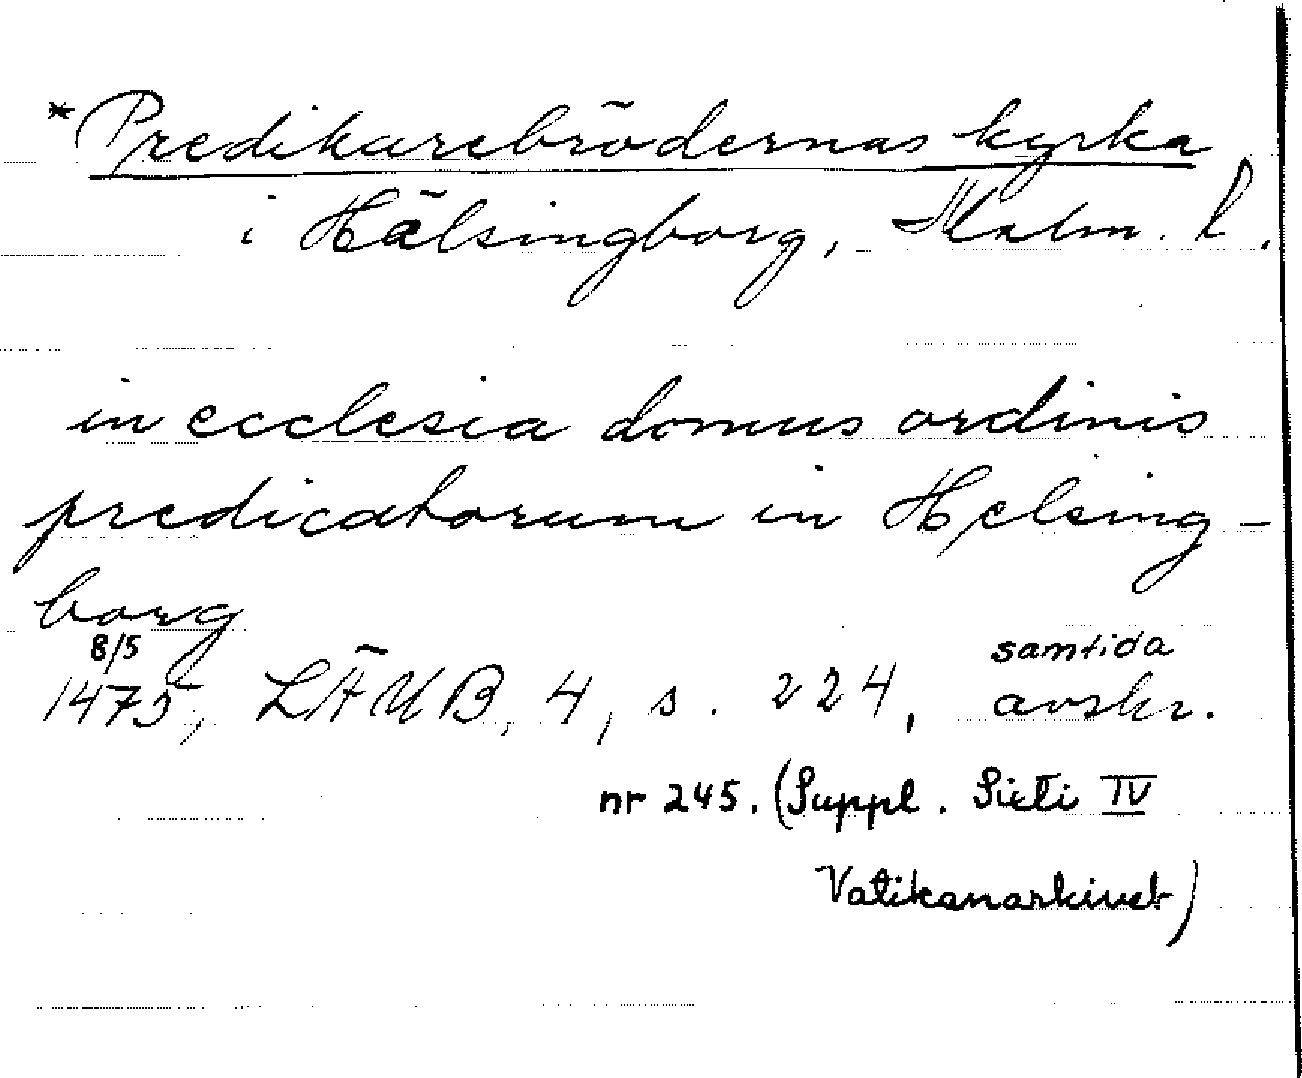 *Predikarebrödernas kyrka
i Hälsingborg, Malm. l.
in ecclesia domus ordinis
predicatorum in Helsing-
borg
8/5 samtida
1475, LÄUB, 4, s. 224, avskr.
nr 245. (Suppl. Sixti IV
Vatikanarkivet)